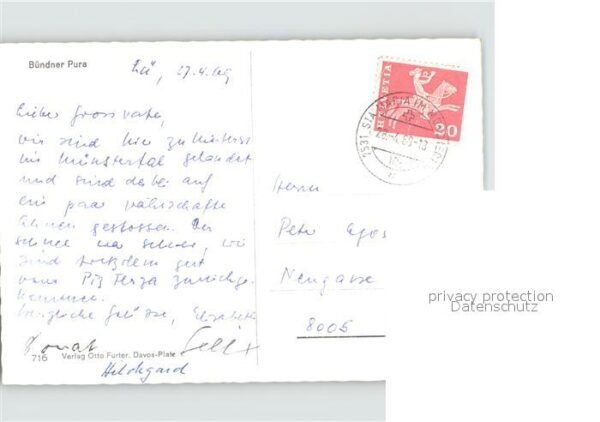 Bündner Pura
Lü, 27.4.69
Lieber Grossvater,
wir sind hier zuhinterst
im Münstertal gelandet
und sind dabei auf
ein paar währschafte
Ahnen gestossen. Der
Schnee war schwer, wir
sind trotzdem gut
vom Piz Terza zurückge-
kommen.
Herzliche Grüsse, Elisabeth
Donat
Hildgard
716 Verlag Otto Furter, Davos-Platz
HELVETIA
20
7531 STA. MARIA IM MÜNSTERTAL
28.-4.69-13
Herrn
Neugasse
8005
privacy protection
Datenschutz